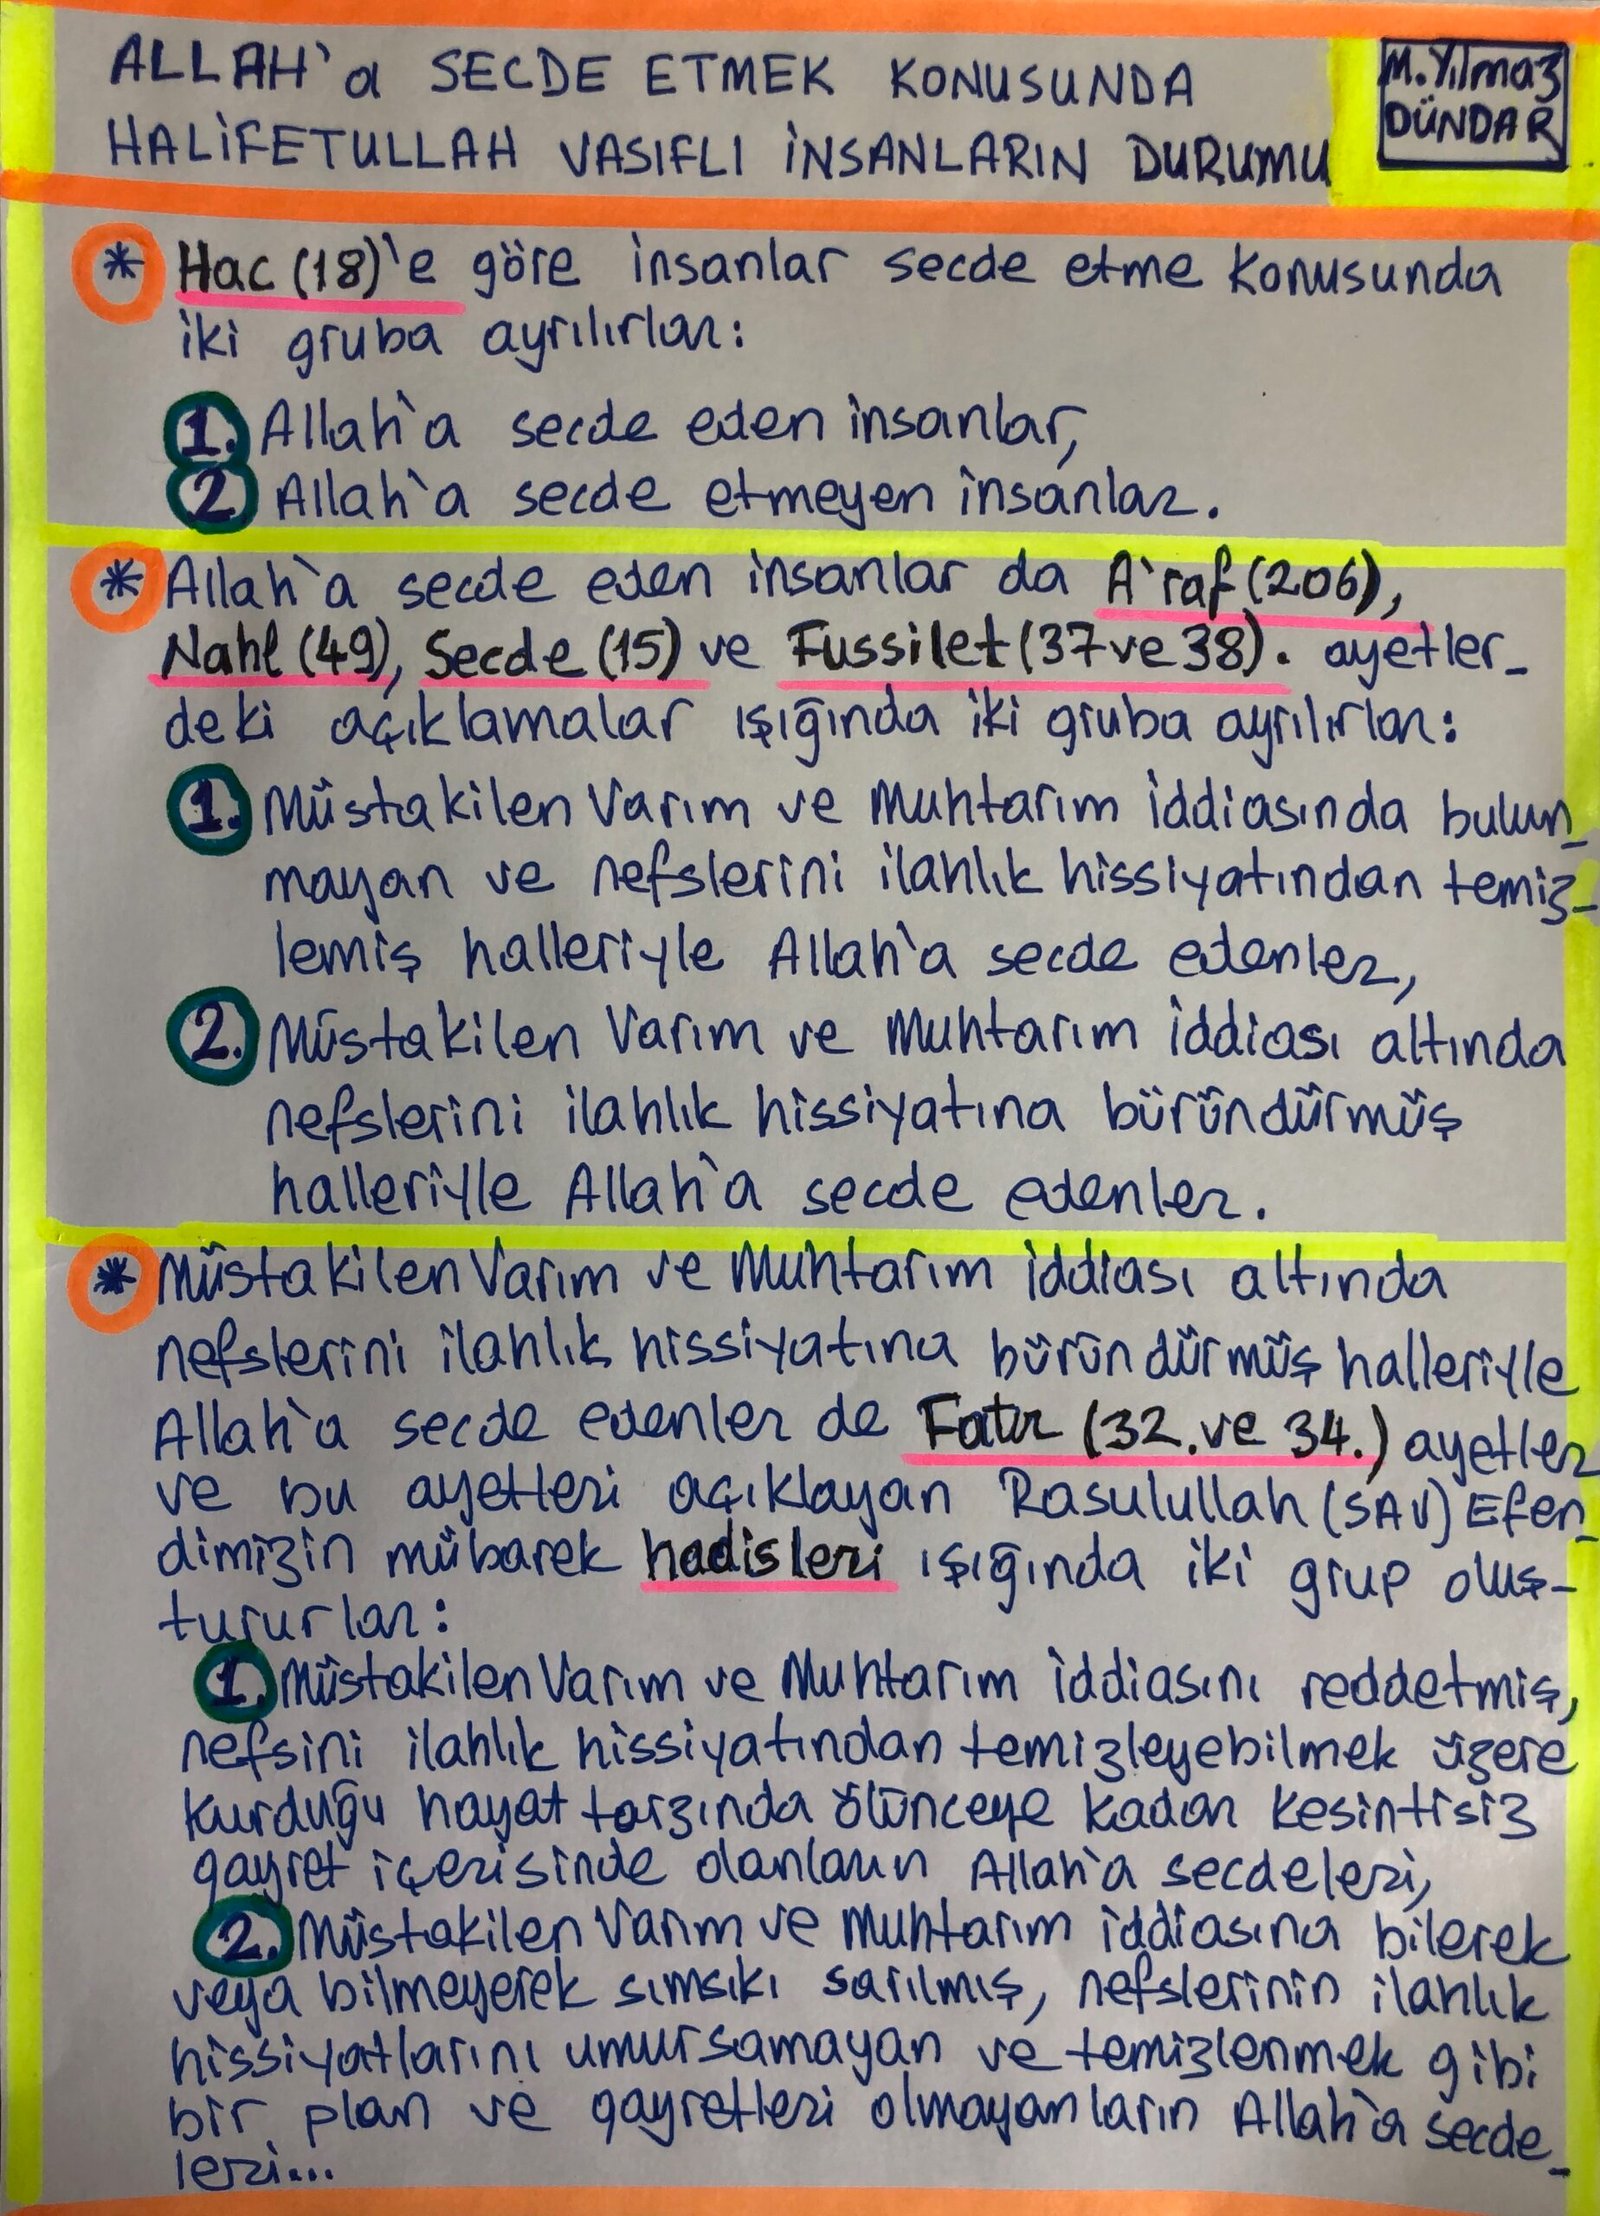 ALLAH'a SECDE ETMEK KONUSUNDA
HALİFETULLAH VASIFLI İNSANLARIN DURUMU
M. Yılmaz
DÜNDAR
* Hac (18)'e göre insanlar secde etme konusunda
iki gruba ayrılırlar:
1. Allah'a secde eden insanlar,
2. Allah'a secde etmeyen insanlar.
* Allah'a secde eden insanlar da A'raf (206),
Nahl (49), Secde (15) ve Fussilet (37 ve 38). ayetler-
deki açıklamalar ışığında iki gruba ayrılırlar:
1. Müstakilen Varım ve Muhtarım iddiasında bulun-
mayan ve nefslerini ilahlık hissiyatından temiz-
lemiş halleriyle Allah'a secde edenler,
2. Müstakilen Varım ve Muhtarım iddiası altında
nefslerini ilahlık hissiyatına büründürmüş
halleriyle Allah'a secde edenler.
* Müstakilen Varım ve Muhtarım iddiası altında
nefslerini ilahlık hissiyatına büründürmüş halleriyle
Allah'a secde edenler de Fatır (32. ve 34.) ayetler
ve bu ayetleri açıklayan Rasulullah (SAV) Efen-
dimizin mübarek hadisleri ışığında iki grup oluş-
tururlar:
1. Müstakilen Varım ve Muhtarım iddiasını reddetmiş,
nefsini ilahlık hissiyatından temizleyebilmek üzere
kurduğu hayat tarzında ölünceye kadar kesintisiz
gayret içerisinde olanların Allah'a secdeleri,
2. Müstakilen Varım ve Muhtarım iddiasına bilerek
veya bilmeyerek sımsıkı sarılmış, nefslerinin ilahlık
hissiyatlarını umursamayan ve temizlenmek gibi
bir plan ve gayretleri olmayanların Allah'a secde-
leri...